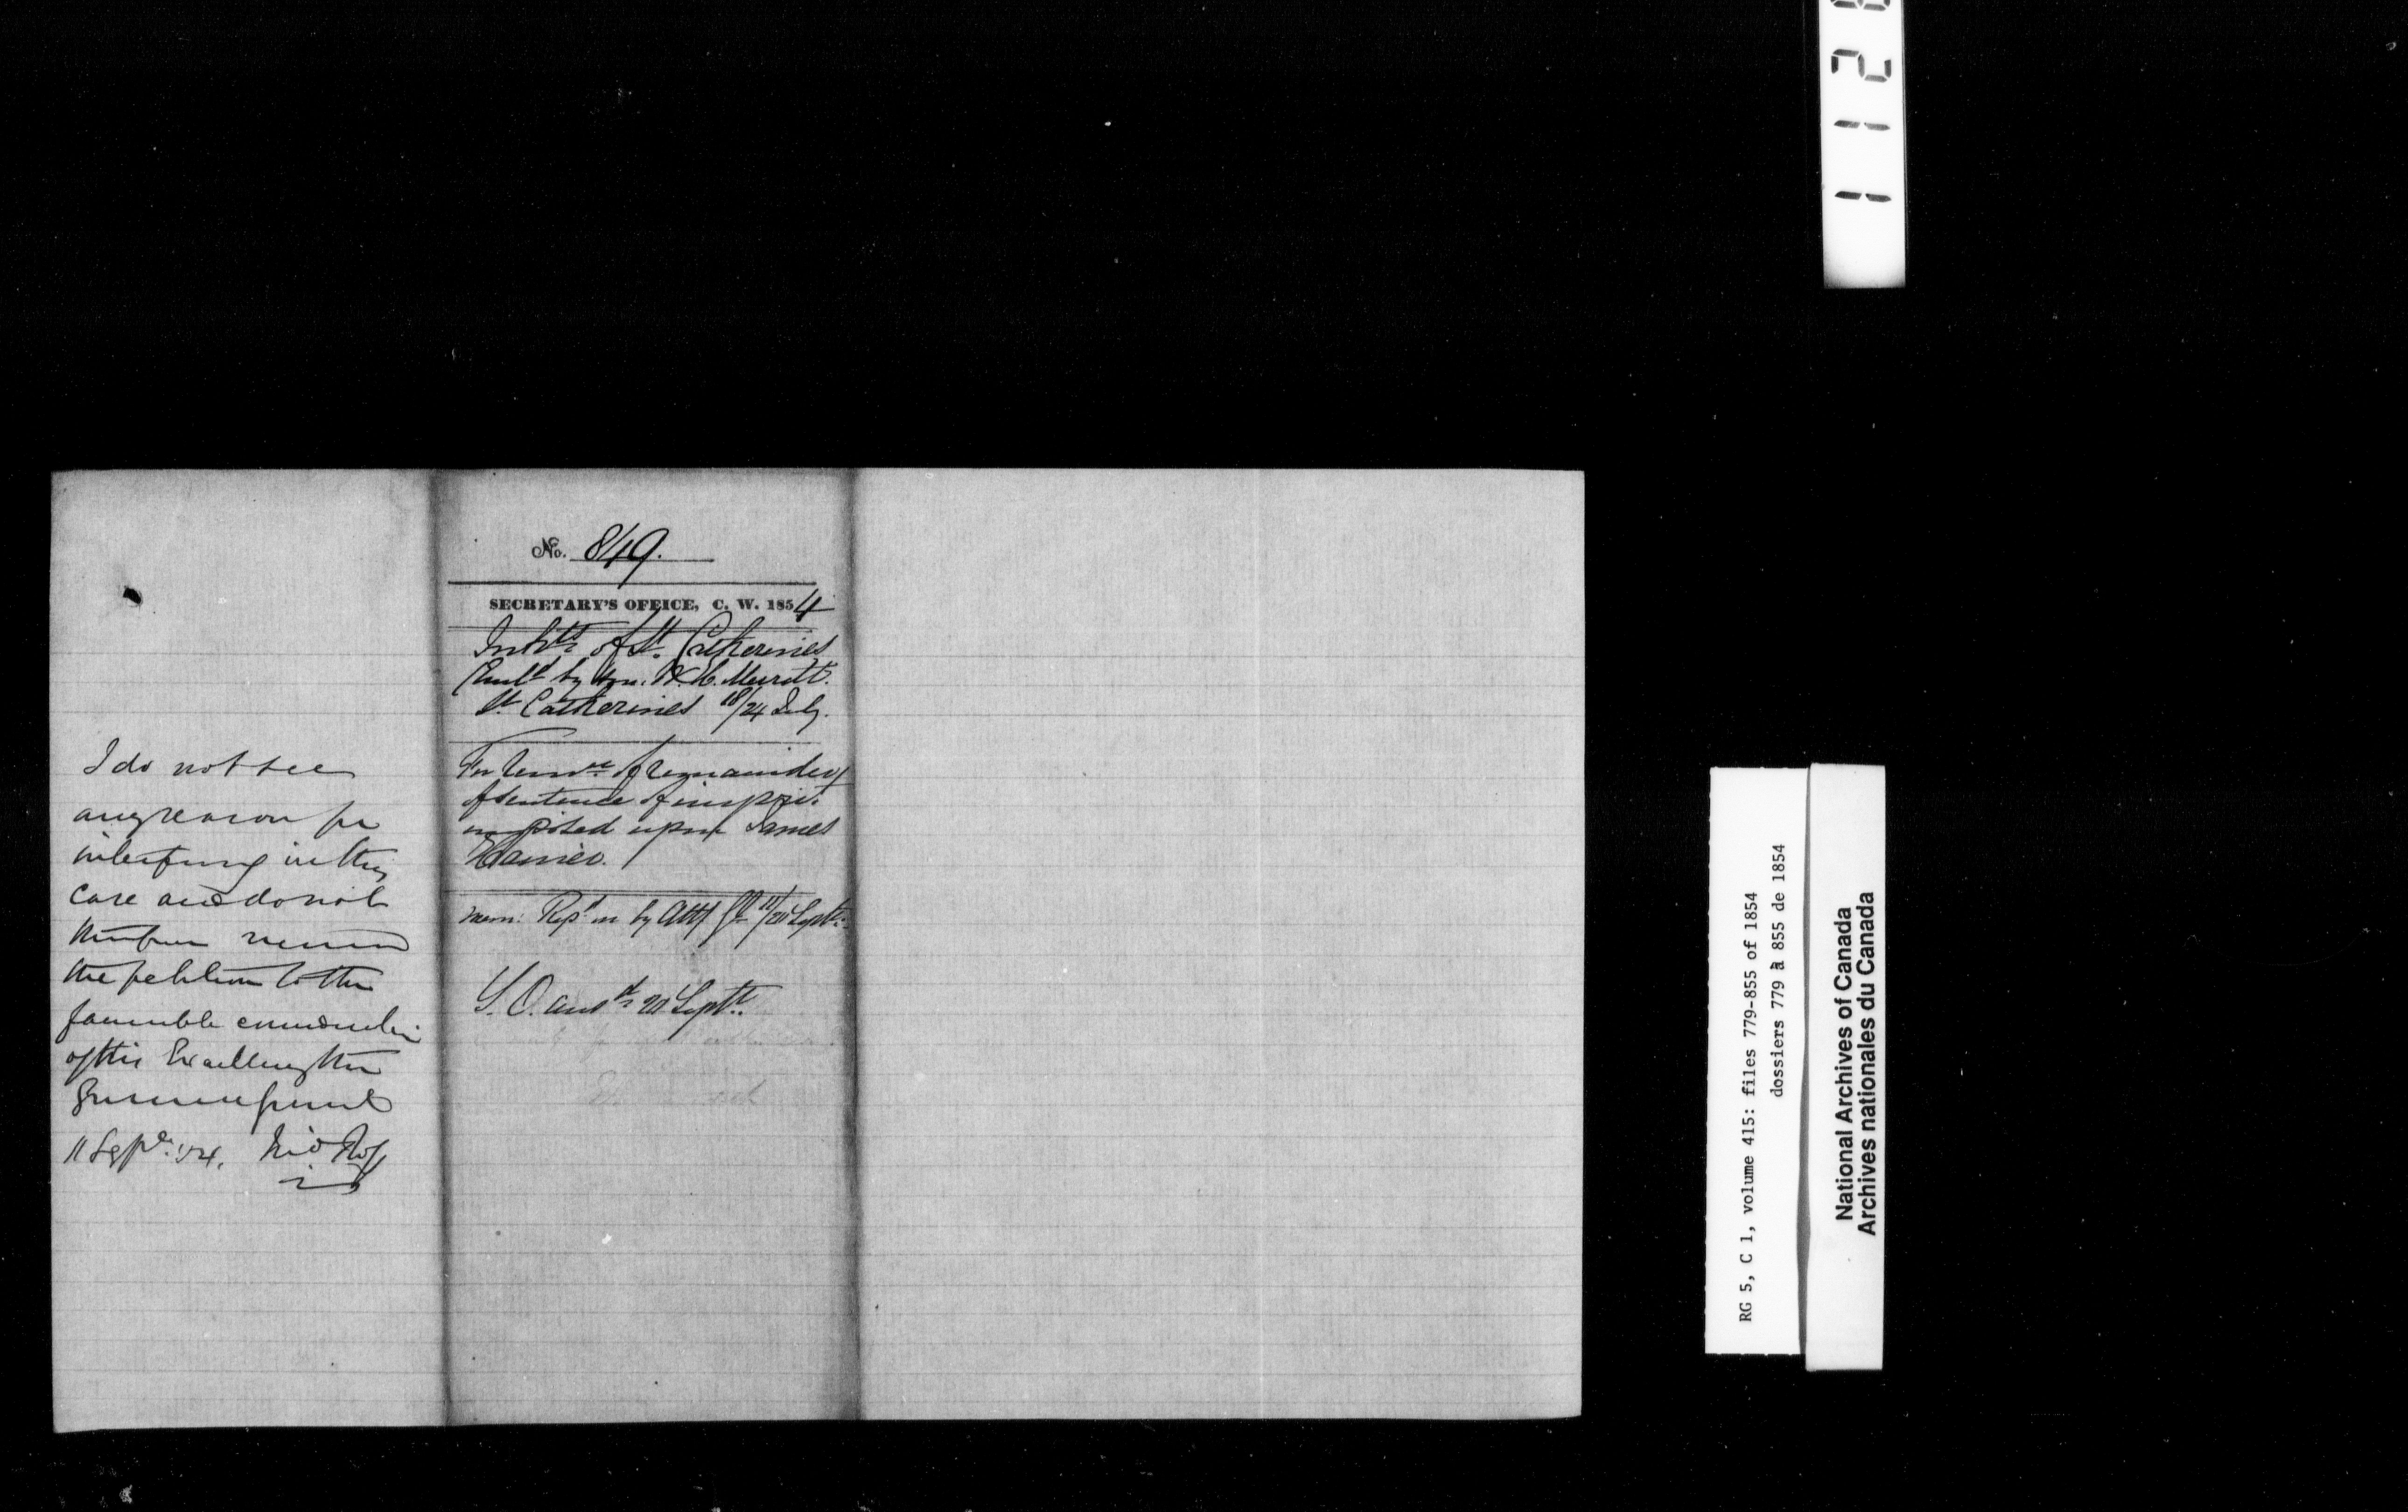 I do not see
any reason for
interfering in this
case and do not
therefore recommend
the petition to the
favourable consideration
of His Excellency the
Government
11 Sept. 54.
No. 849.
SECRETARY'S OFFICE, C. W. 1854
Inhts. of St. Catherines
by Hon. W. H. Merritt.
St. Catherines 18/24 July.
For remn. of remainder
of sentence of impt.
imposed upon James
mem: Repd. on by Atty Gl. 11/20 Septr.
S. O. ansd. 20 Septr.
RG 5, C 1, volume 415: files 779-855 of 1854
dossiers 779 à 855 de 1854
National Archives of Canada
Archives nationales du Canada
1 1 2